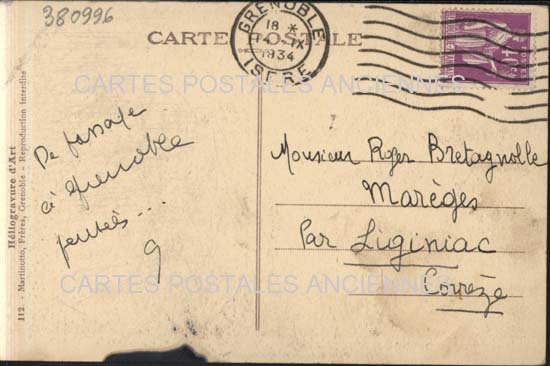 380996
CARTE POSTALE
GRENOBLE
18 *
14 - IX
1934
ISERE
CARTES POSTALES ANCIENNES
De passage
à Grenoble
pensées...
Monsieur Roger Bretagnolle
Marèges
Par Liginiac
Corrèze
CARTES POSTALES ANCIENNES
Héliogravure d'Art
112. - Martinotto, Frères, Grenoble - Reproduction interdite